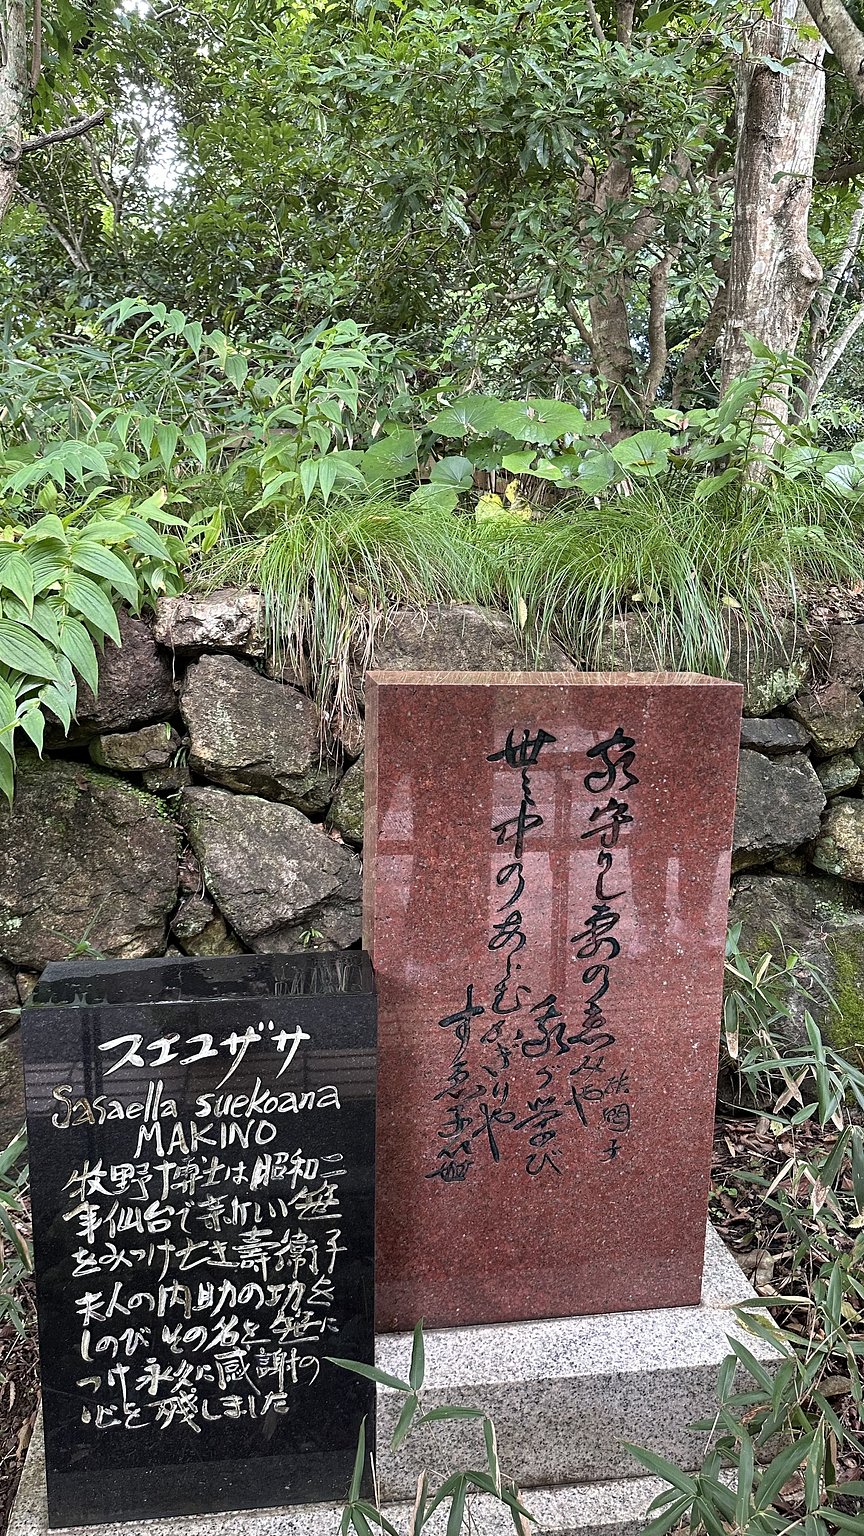 スエコザサ
Sasaella suekoana
MAKINO
牧野博士は昭和二
年仙台で新しい笹
をみつけ亡き壽衛子
夫人の内助の功を
しのび その名を笹に
つけ永久に感謝の
心を残しました
家守りし妻の恵みや
我が学び
世の中のあらむかぎりや
すゑ子笹